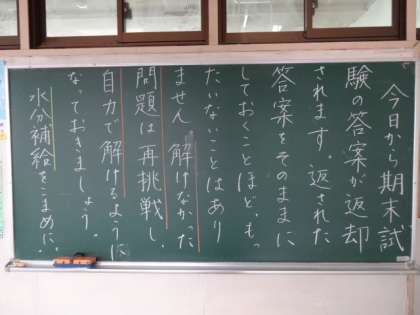 今日から期末試
験の答案が返却
されます。返された
答案をそのままに
しておくことほど、もっ
たいないことはあり
ません。解けなかった
問題は再挑戦し、
自力で解けるように
なっておきましょう。
水分補給をこまめに!